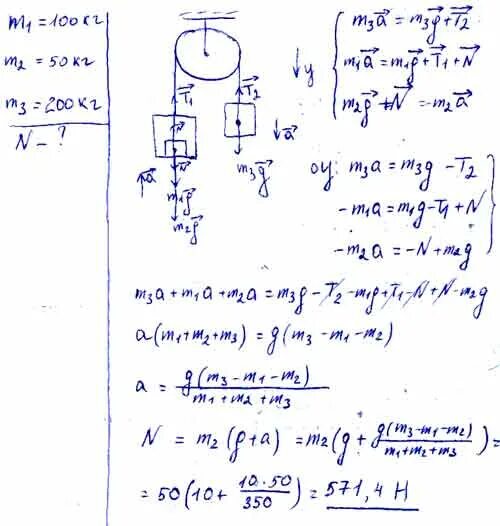 m₁ = 100 кг
m₂ = 50 кг
m₃ = 200 кг
N - ?
T⃗₁
N⃗
N⃗
a⃗
m₁g⃗
m₂g⃗
T⃗₂
a⃗
m₃g⃗
y
m₃a⃗ = m₃g⃗ + T⃗₂
m₁a⃗ = m₁g⃗ + T⃗₁ + N⃗
m₂g⃗ + N⃗ = -m₂a⃗
oy: m₃a = m₃g - T₂
-m₁a = m₁g - T₁ + N
-m₂a = -N + m₂g
m₃a + m₁a + m₂a = m₃g - T₂ - m₁g + T₁ - N + N - m₂g
a(m₁ + m₂ + m₃) = g(m₃ - m₁ - m₂)
a = g(m₃ - m₁ - m₂) / m₁ + m₂ + m₃
N = m₂(g + a) = m₂(g + g(m₃ - m₁ - m₂) / m₁ + m₂ + m₃) =
= 50(10 + 10·50 / 350) = 571,4 Н